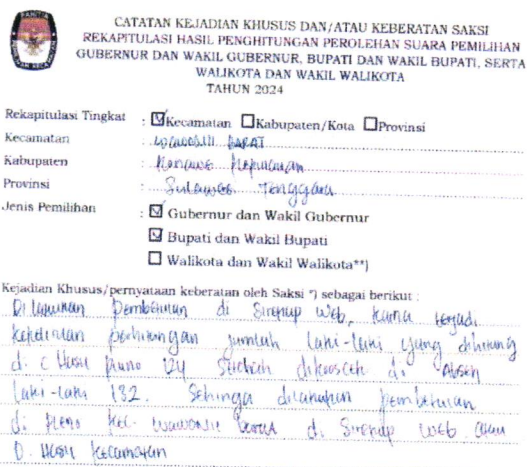 PANITIA
CATATAN KEJADIAN KHUSUS DAN/ATAU KEBERATAN SAKSI
REKAPITULASI HASIL PENGHITUNGAN PEROLEHAN SUARA PEMILIHAN
GUBERNUR DAN WAKIL GUBERNUR, BUPATI DAN WAKIL BUPATI, SERTA
WALIKOTA DAN WAKIL WALIKOTA
TAHUN 2024
Rekapitulasi Tingkat : Kecamatan Kabupaten/Kota Provinsi
Kecamatan : WAWONII BARAT
Kabupaten : Konawe Kepulauan
Provinsi : Sulawesi Tenggara
Jenis Pemilihan : Gubernur dan Wakil Gubernur
Bupati dan Wakil Bupati
Walikota dan Wakil Walikota**)
Kejadian Khusus/pernyataan keberatan oleh Saksi *) sebagai berikut :
Di lakukan pembenian di Sirekap Web, karna terjadi
perhitungan jumlah laki-laki yang dihitung
di C Hasil Plano 124 Setelah dikroscek di Absen
laki-laki 132. Sehingga dilakukan
di Pleno Kec. Wawonii barat di Sirekap Web akan
D. Hasil Kecamatan